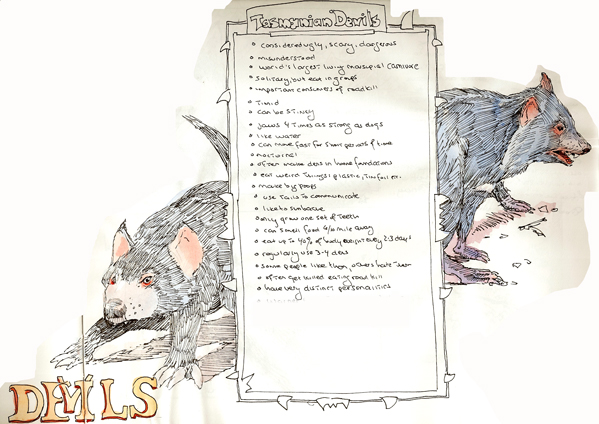 Tasmanian Devils
considered ugly, scary, dangerous
misunderstood
world's largest living marsupial carnivore
solitary, but eat in groups
important consumers of roadkill
timid
can be stinky
jaws 4 times as strong as dogs
like water
can move fast for short periods of time
nocturnal
often make dens in home foundations
eat weird things: plastic, tinfoil etc.
make big poops
use tails to communicate
like to sunbathe
only grow one set of teeth
can smell food mile away
eat up to 40% of body weight every 2-3 days
regularly use 3-4 dens
some people like them, others hate them
often get killed eating road kill
have very distinct personalities
DEVILS